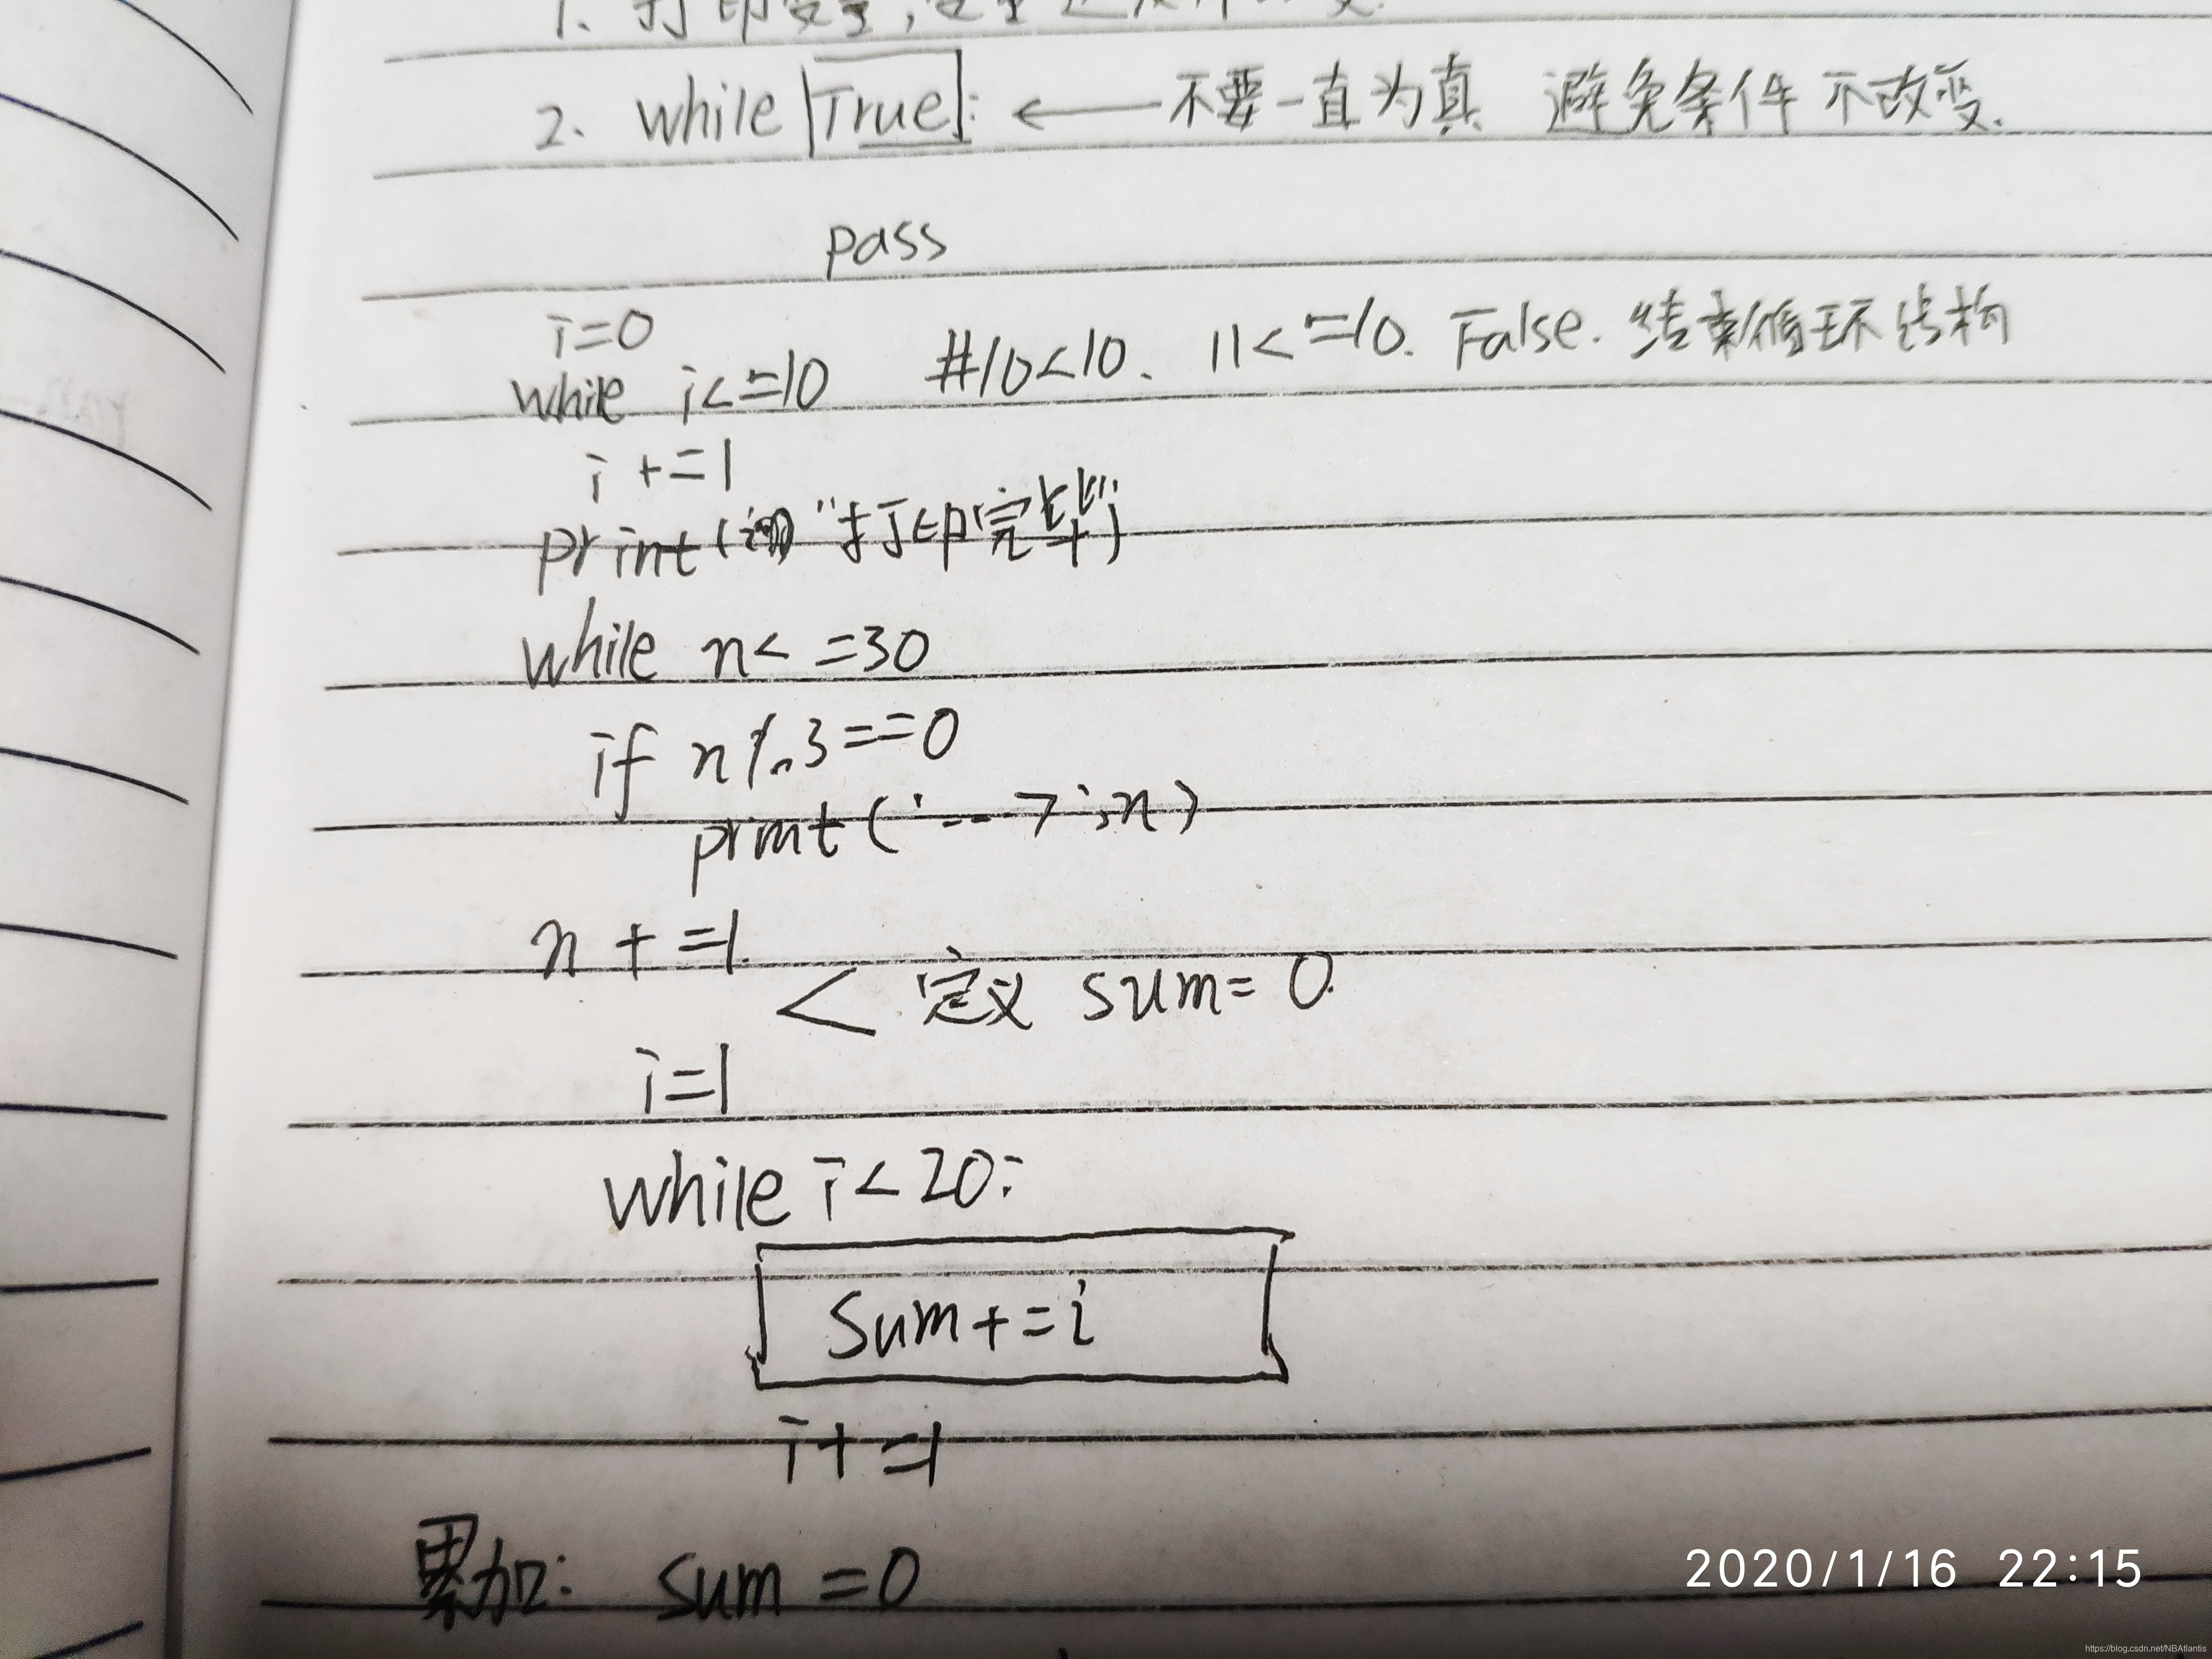 1. 打印变量,变量
2. while True: ← 不要一直为真 避免条件不改变.
pass
i=0
while i<=10 #10<10. 11<=10. False. 结束循环结构
i +=1
print( "打印完毕")
while n< =30
if n%3==0
print('--->',n)
n + =1
< 定义 sum= 0.
i=1
while i<20:
Sum+=i
i+ =1
累加: sum =0
2020/1/16 22:15
https://blog.csdn.net/NBAtlantis